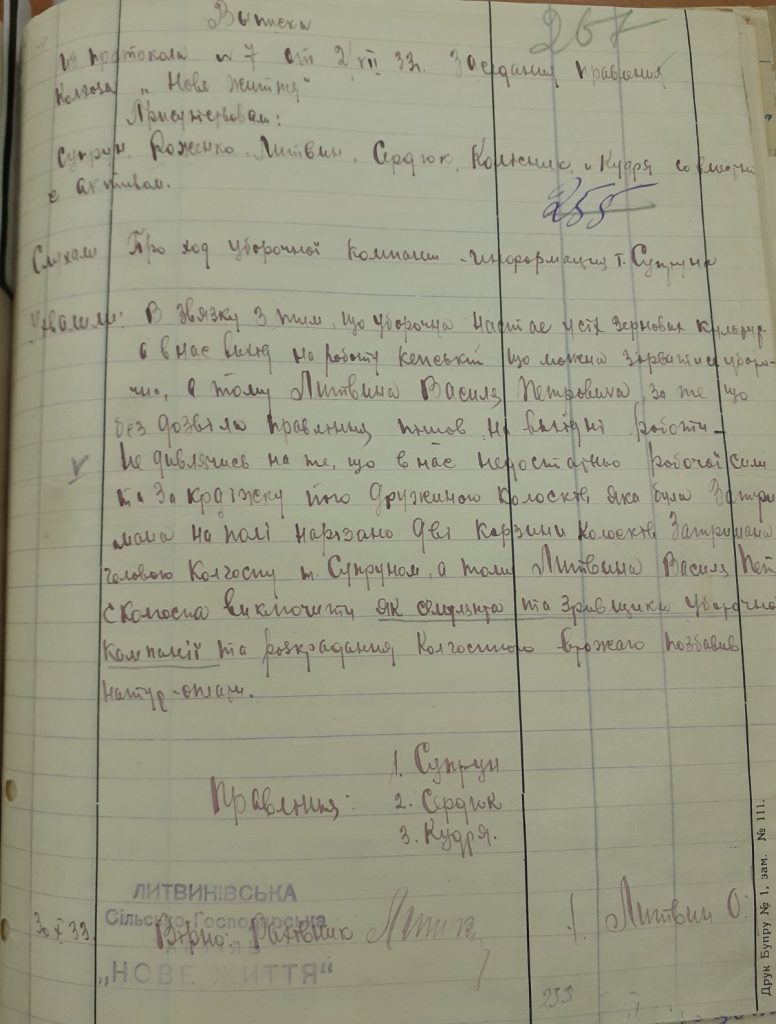 Выписка
267
из протокола № 7 от 2/VII 33 г. Заседания правления
Колгоза „Нове життя"
Присутствовали:
Супрун, Роженко, Литвин, Сердюк, Колесник, и Кудря совместно
с активом.
255
Слухали Про ход уборочной компании - информация т. Супруна
Ухвалили: В звязку з тим, що уборочна настае усіх зернових культур
а в нас вихід на роботу кепський що можна зірвати уборо-
чну, а тому Литвина Василя Петровича за те що
без дозвілу правления пішов на вихідні роботи -
не дивлячись на те, що в нас недостатньо робочої сили
та за крадіжку його дружиною колосків яка була затри
мана на полі нарізано дві карзини колосків. Затримана
головою Колгоспу т. Супруном, а тому Литвина Василя Пет
с колгоспа виключити як та зривщика уборочної
компанії та розкрадания колгоспного врожаю позбавив
натур-оплати.
Правління: 1. Супрун
2. Сердюк
3. Кудря.
ЛИТВИНІВСЬКА
Сільсько-Господарська
АРТІЛЬ
„НОВЕ ЖИТТЯ"
30 X 33. Вірно: Рахівник
Литвин О.
233
Друк Бупру № 1, зам. № 111.